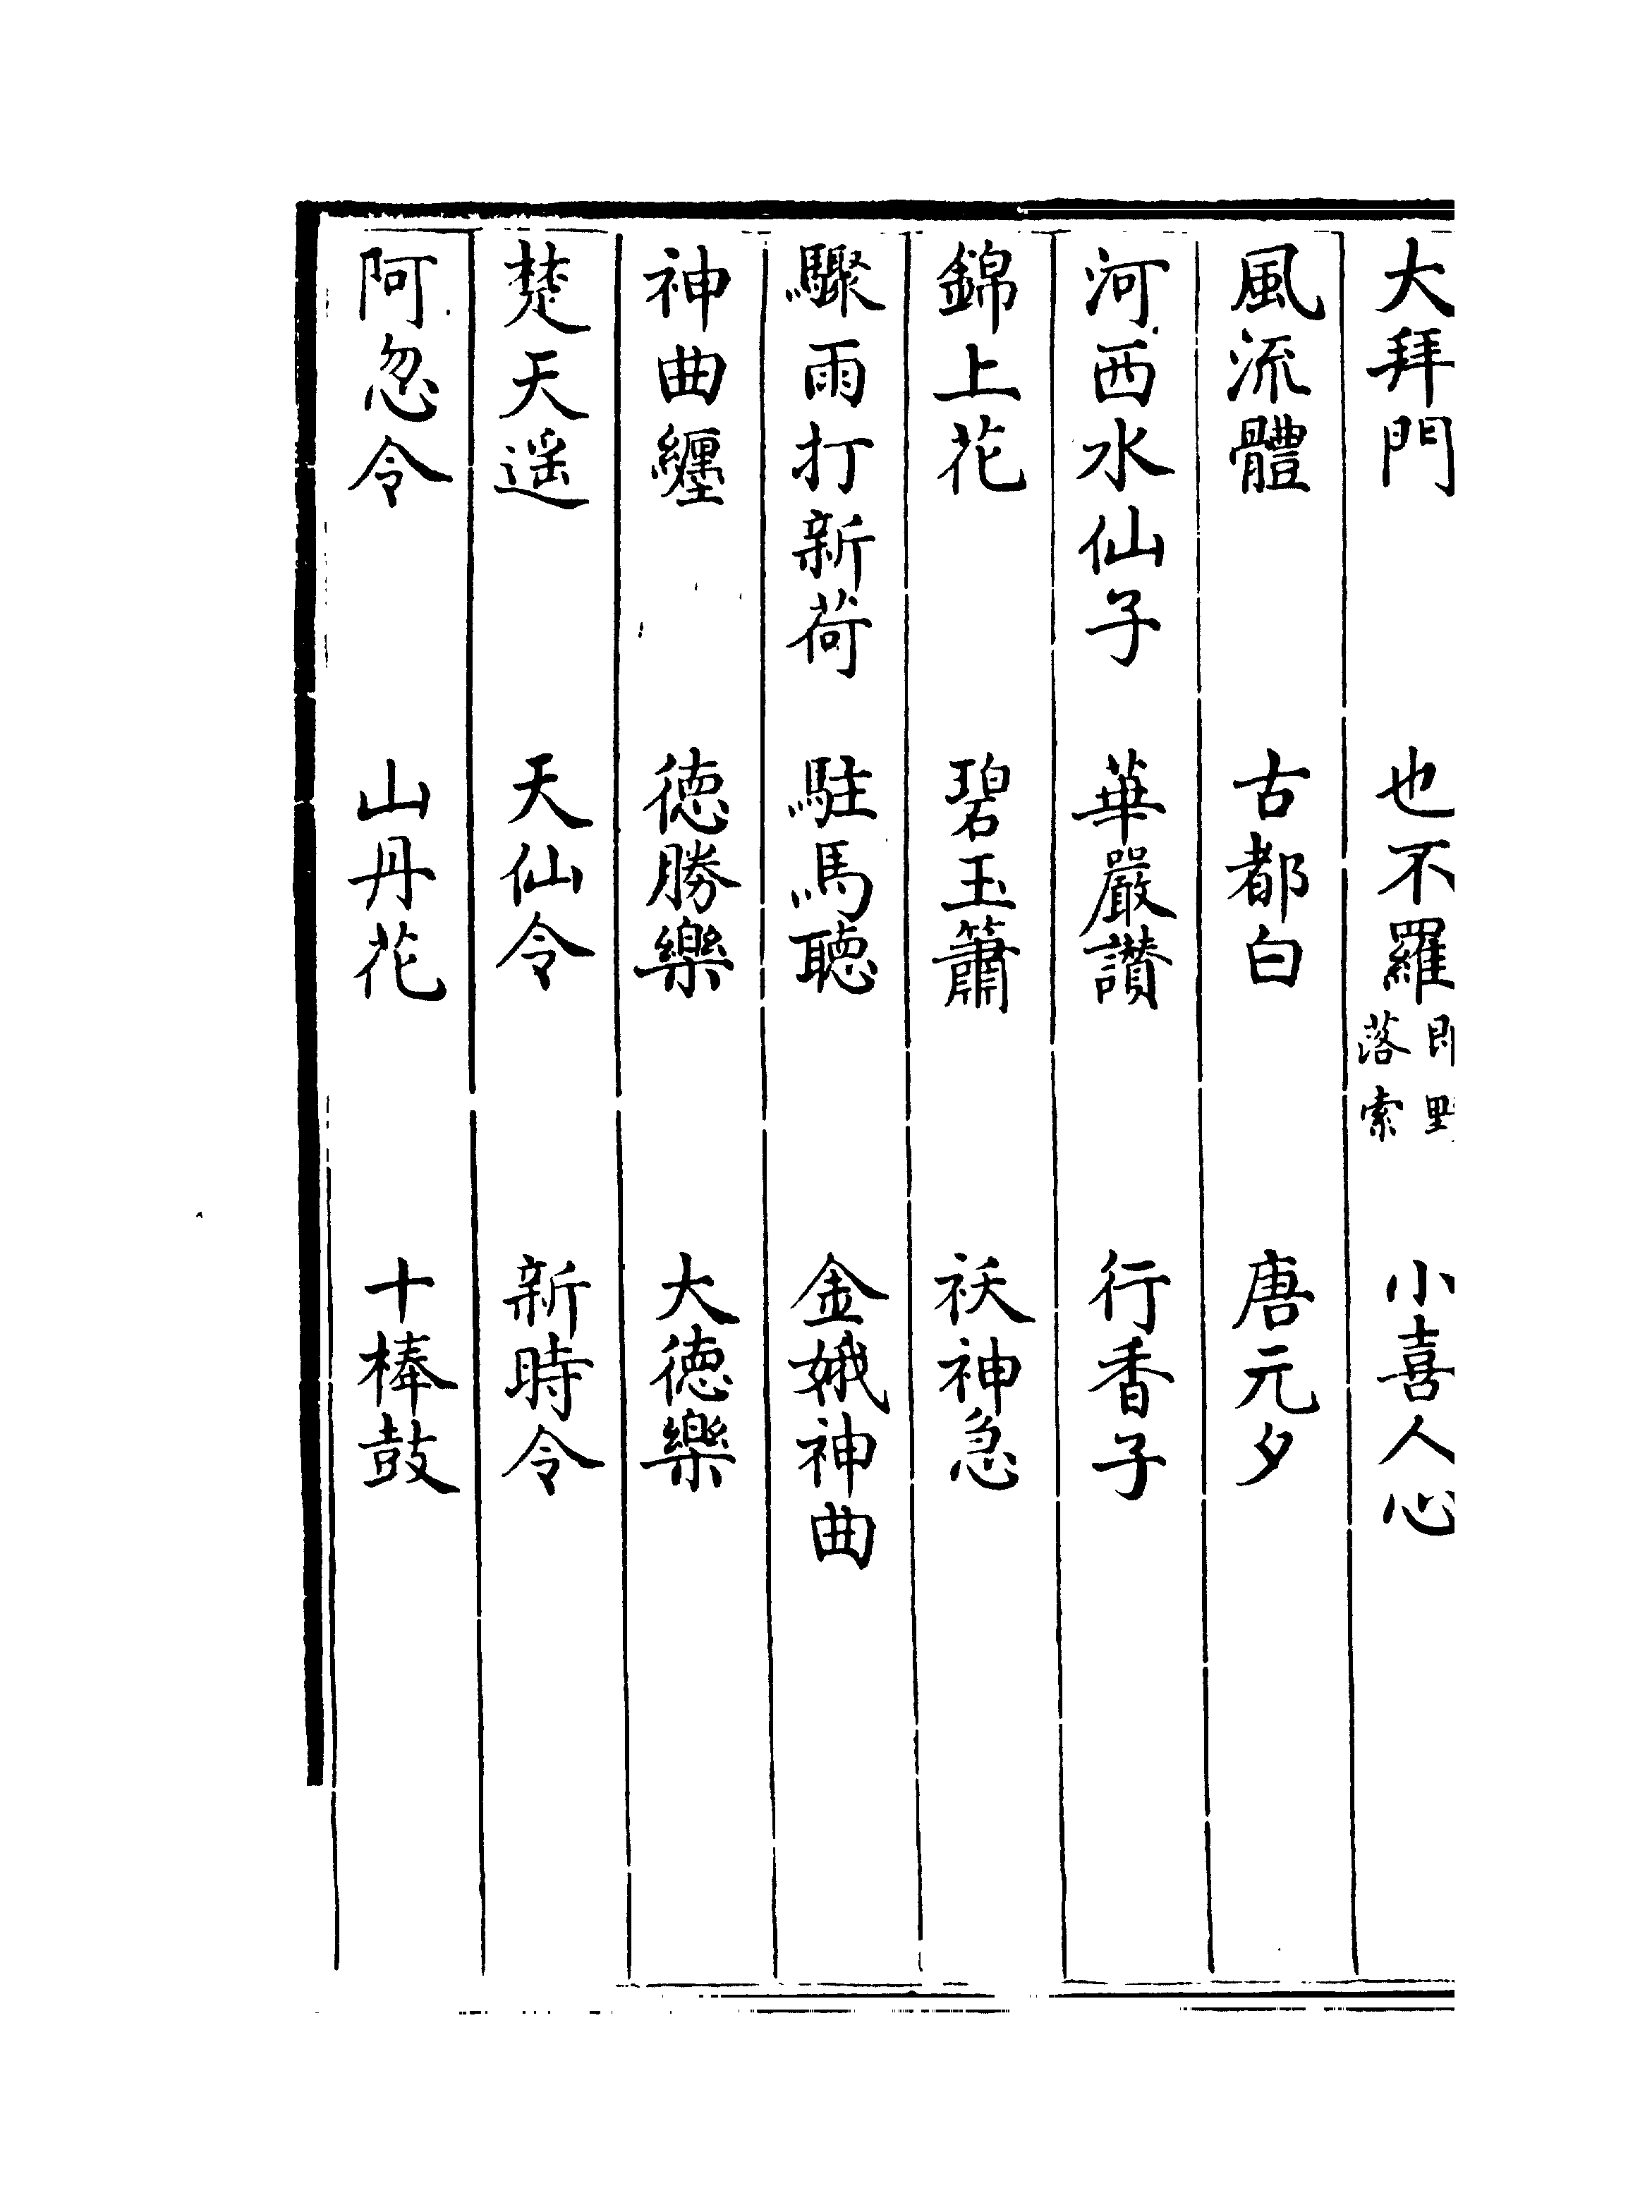 大拜門　也不羅即野落索　小喜人心
風流體　古都白　唐元夕
河西水仙子　華嚴讃　行香子
錦上花　碧玉簫　祆神急
驟雨打新荷　駐馬聽　金娥神曲
神曲纒　徳勝樂　大徳樂
楚天遥　天仙令　新時令
阿忽令　山丹花　十棒鼓